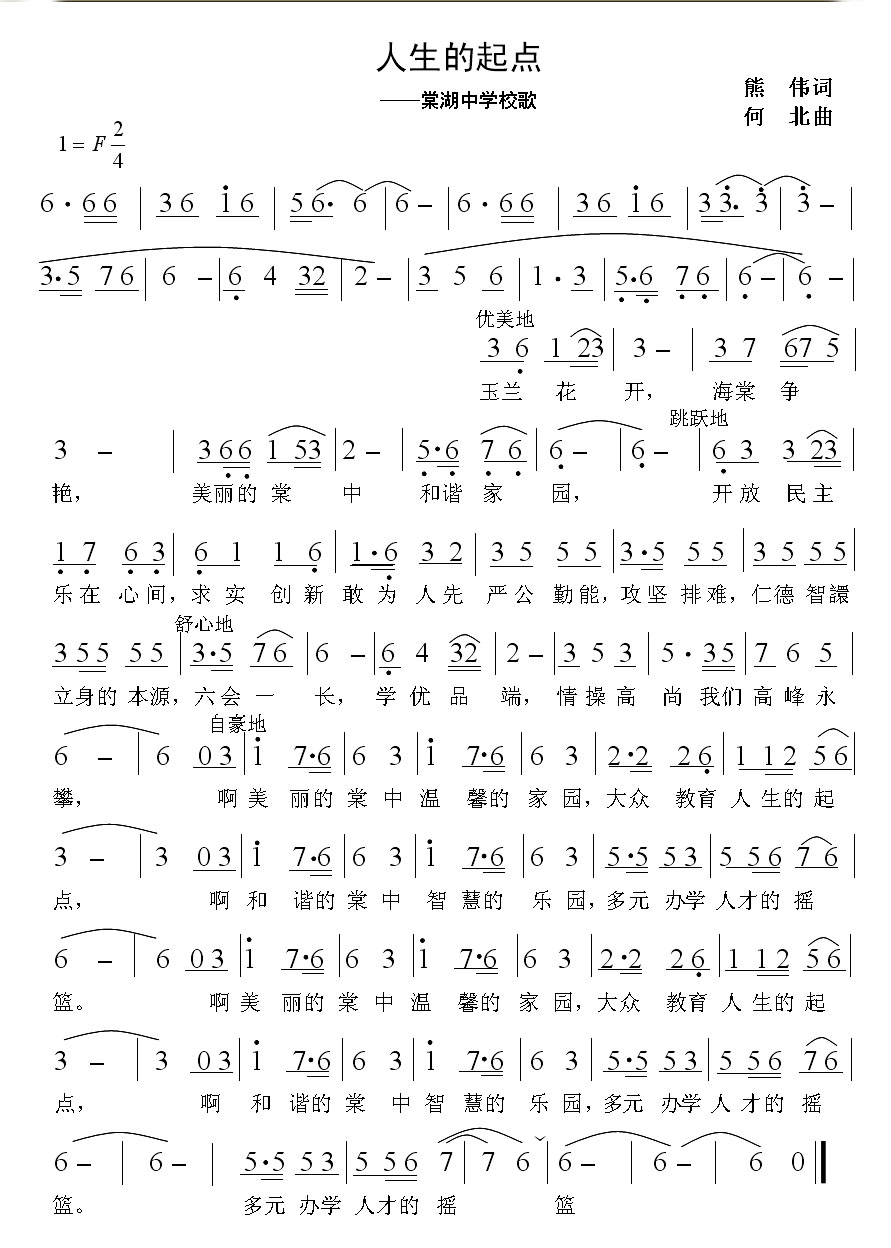 人生的起点
——棠湖中学校歌
熊 伟词
何 北曲
1= F 2/4
6 · 6 6 | 3 6 i 6 | 5 6· 6 | 6 – | 6 · 6 6 | 3 6 i 6 | 3 3· 3 | 3 – |
3·5 7 6 | 6 – | 6 4 32 | 2 – | 3 5 6 | 1 · 3 | 5·6 7 6 | 6 – | 6 – |
优美地
3 6 1 23 | 3 – | 3 7 67 5 |
玉兰 花 开， 海棠 争
跳跃地
3 – | 3 6 6 1 53 | 2 – | 5·6 7 6 | 6 – | 6 – | 6 3 3 23 |
艳， 美丽的 棠 中 和谐 家 园， 开 放 民 主
1 7 6 3 | 6 1 1 6 | 1·6 3 2 | 3 5 5 5 | 3·5 5 5 | 3 5 5 5 |
乐 在 心 间，求 实 创 新 敢 为 人 先 严 公 勤 能，攻 坚 排 难，仁 德 智 譞
舒心地
3 5 5 5 5 | 3·5 7 6 | 6 – | 6 4 32 | 2 – | 3 5 3 | 5 · 3 5 | 7 6 5
立身的 本源，六会 一 长， 学 优 品 端，情 操 高 尚 我们 高 峰 永
自豪地
6 – | 6 0 3 | i 7·6 | 6 3 | i 7·6 | 6 3 | 2·2 2 6 | 1 1 2 5 6 |
攀， 啊 美 丽的 棠 中 温 馨的 家 园，大众 教育 人 生的 起
3 – | 3 0 3 | i 7·6 | 6 3 | i 7·6 | 6 3 | 5·5 5 3 | 5 5 6 7 6 |
点， 啊 和 谐的 棠 中 智 慧的 乐 园，多元 办学 人才的 摇
6 – | 6 0 3 | i 7·6 | 6 3 | i 7·6 | 6 3 | 2·2 2 6 | 1 1 2 5 6 |
篮。 啊 美 丽的 棠 中 温 馨的 家 园，大众 教育 人 生的 起
3 – | 3 0 3 | i 7·6 | 6 3 | i 7·6 | 6 3 | 5·5 5 3 | 5 5 6 7 6 |
点， 啊 和 谐的 棠 中 智 慧的 乐 园，多元 办学 人 才的 摇
6 – | 6 – | 5·5 5 3 | 5 5 6 7 | 7 6 | 6 – | 6 – | 6 0 ‖
篮。 多元 办学 人才的 摇 篮